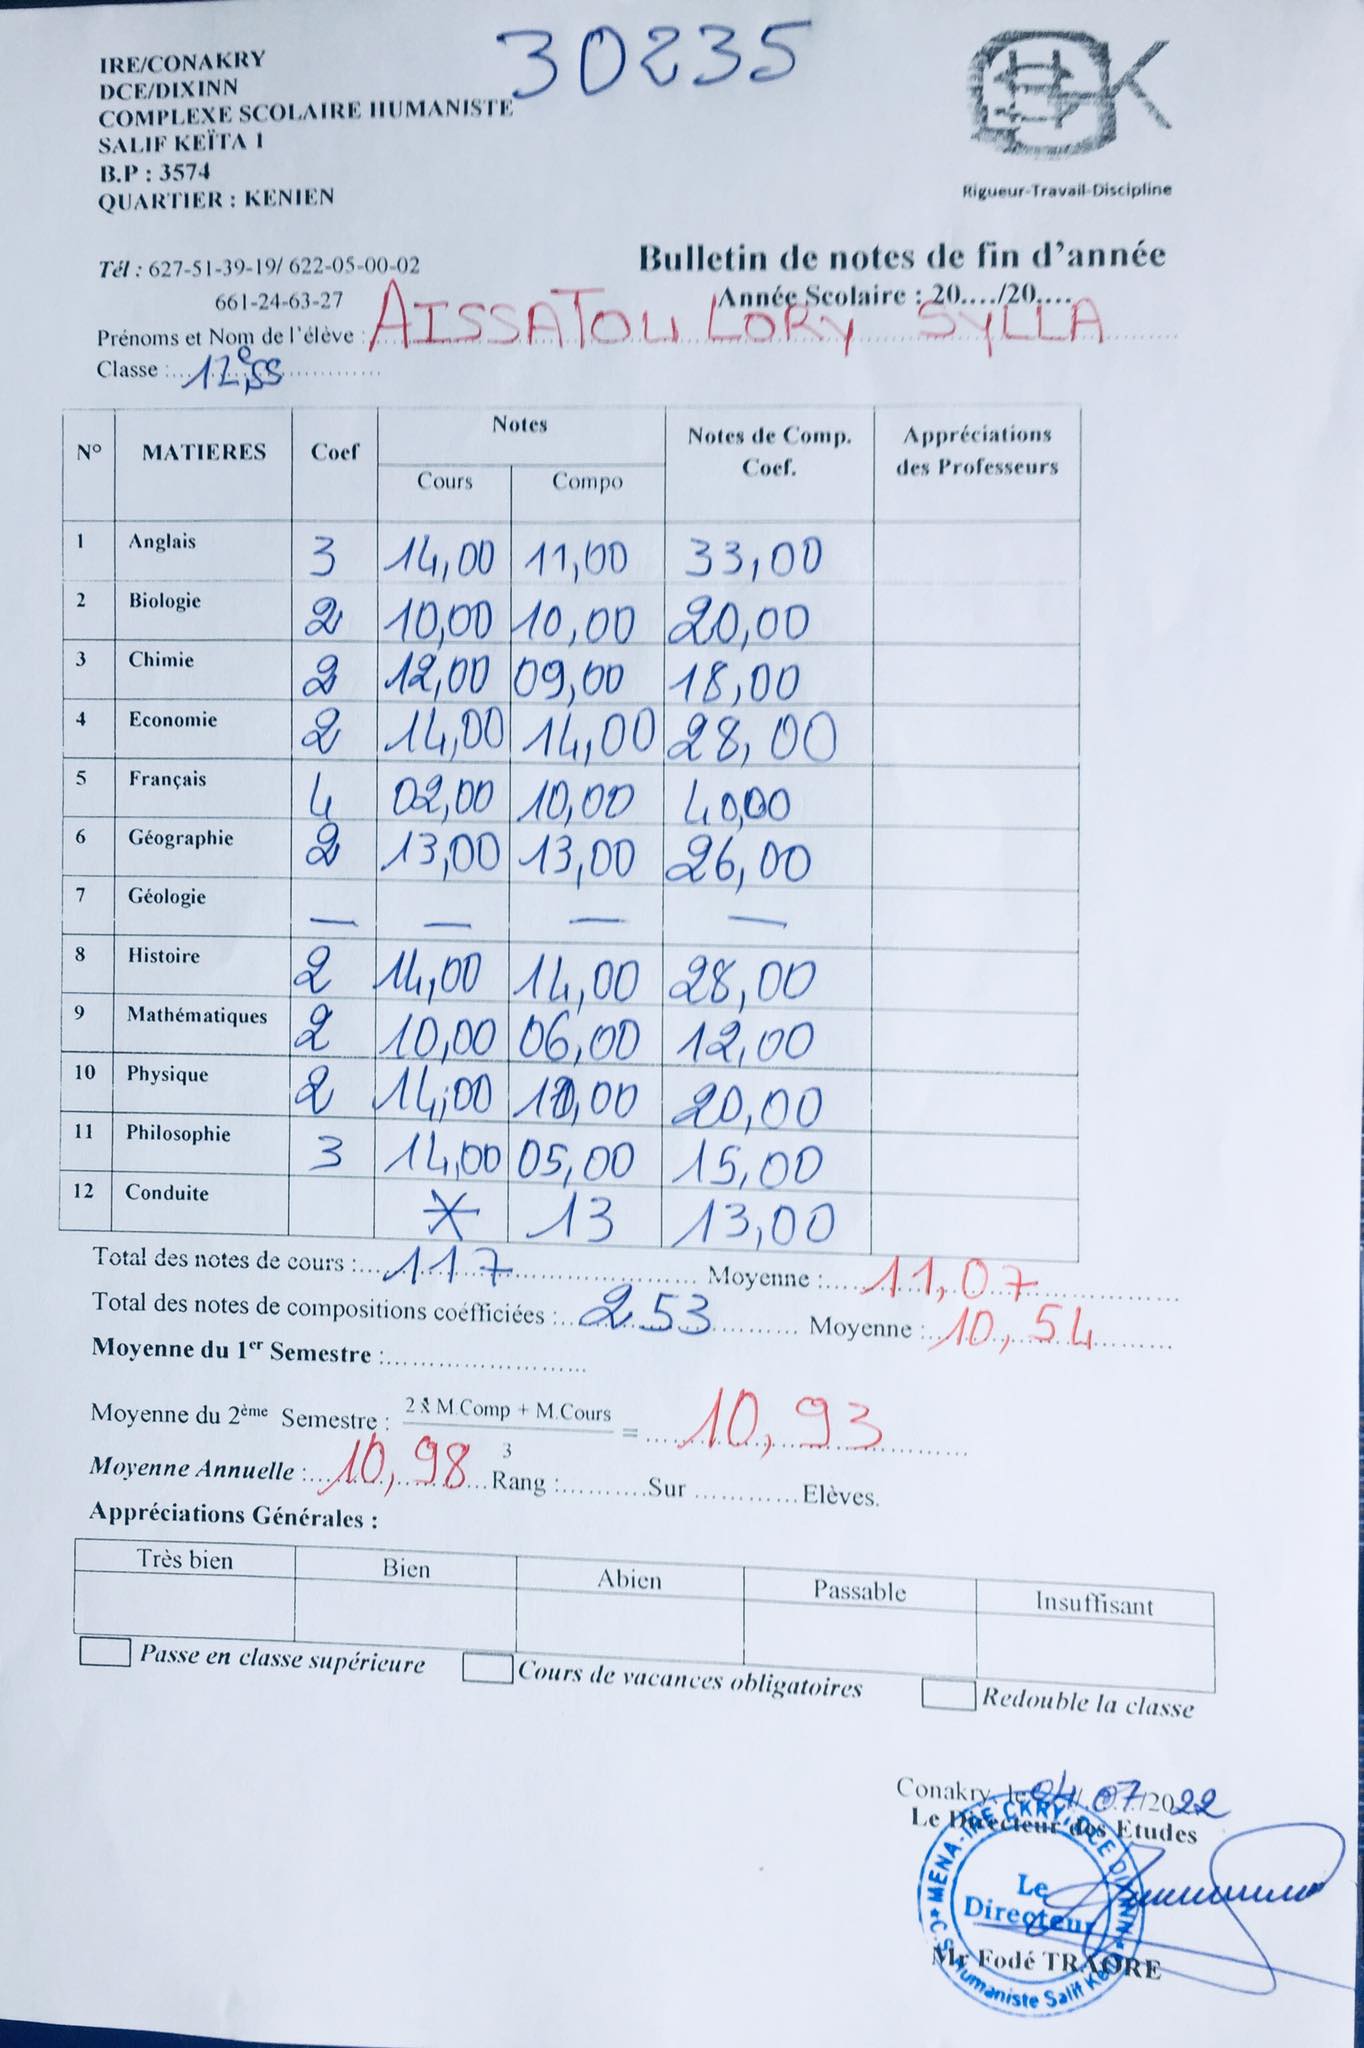 30235
IRE/CONAKRY
DCE/DIXINN
COMPLEXE SCOLAIRE HUMANISTE
SALIF KEÏTA 1
B.P : 3574
QUARTIER : KENIEN
Rigueur-Travail-Discipline
Tél : 627-51-39-19/ 622-05-00-02
661-24-63-27
Bulletin de notes de fin d'année
Année Scolaire : 20..../20....
Prénoms et Nom de l'élève : AISSATOU LORY SYLLA
Classe : 12e SS
N° MATIERES Coef Notes Notes de Comp. Coef. Appréciations des Professeurs
Cours Compo
1 Anglais 3 14,00 11,00 33,00
2 Biologie 2 10,00 10,00 20,00
3 Chimie 2 12,00 09,00 18,00
4 Economie 2 14,00 14,00 28,00
5 Français 4 02,00 10,00 40,00
6 Géographie 2 13,00 13,00 26,00
7 Géologie — — — —
8 Histoire 2 14,00 14,00 28,00
9 Mathématiques 2 10,00 06,00 12,00
10 Physique 2 14,00 10,00 20,00
11 Philosophie 3 14,00 05,00 15,00
12 Conduite * 13 13,00
Total des notes de cours : 117 Moyenne : 11,07
Total des notes de compositions coéfficiées : 253 Moyenne : 10,54
Moyenne du 1er Semestre :
Moyenne du 2ème Semestre : 2 x M.Comp + M.Cours / 3 = 10,93
Moyenne Annuelle : 10,98 Rang : Sur Elèves.
Appréciations Générales :
Très bien Bien Abien Passable Insuffisant
Passe en classe supérieure Cours de vacances obligatoires Redouble la classe
Conakry, le 04/07/2022
Le Directeur des Etudes
MENA-IRE CKRY, DCE DIXINN
Le Directeur
Mr Fodé TRAORE
C.S. Humaniste Salif Keita